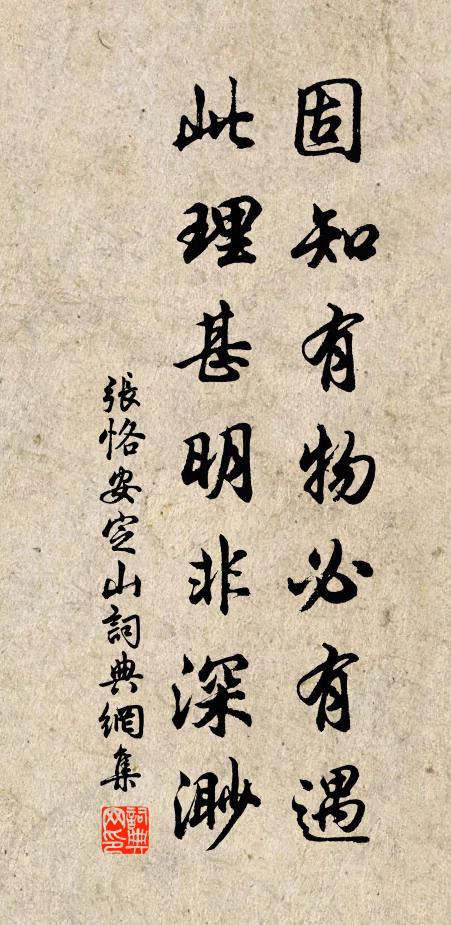 固知有物必有遇
此理甚明非深渺
張恪安定山詞典網集
詞典網印